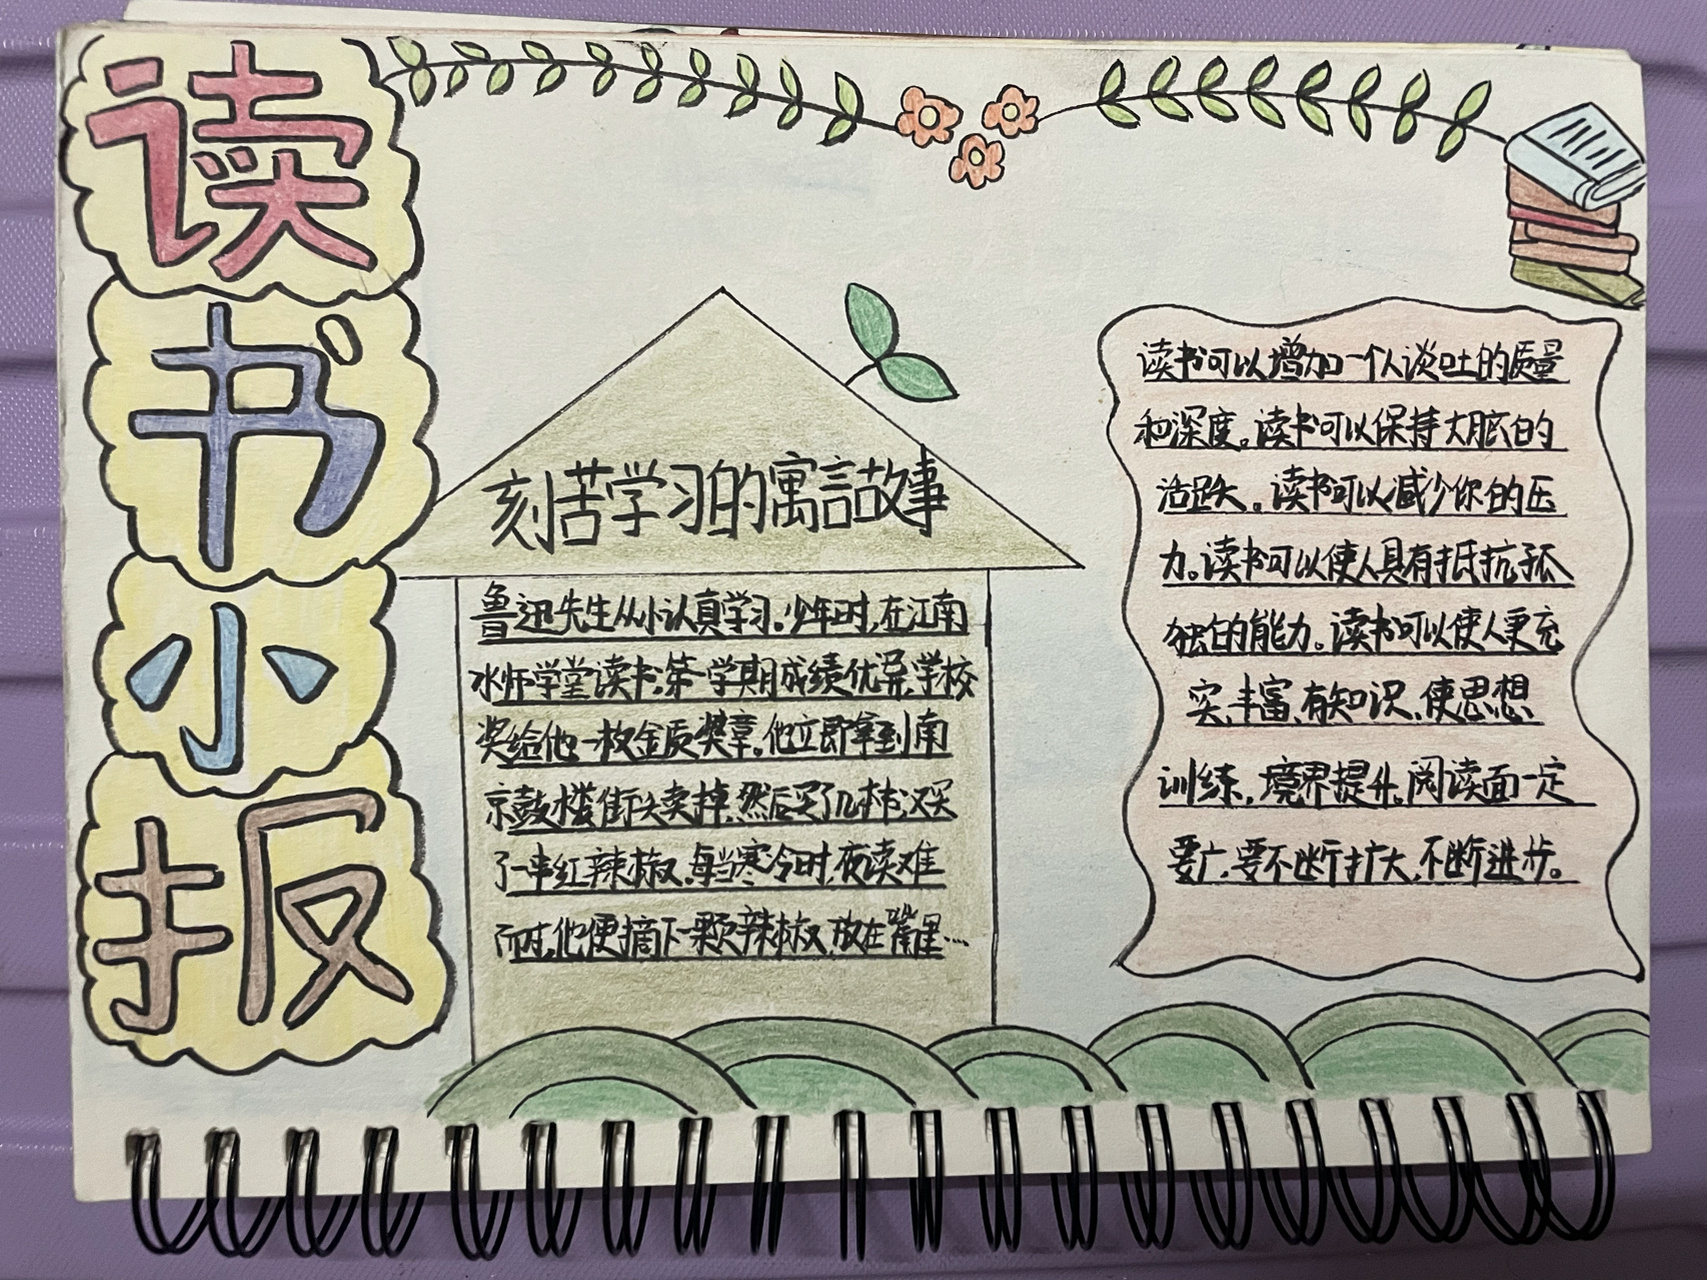 读
书
小
报
刻苦学习的寓言故事
鲁迅先生从小认真学习。少年时,在江南
水师学堂读书,第一学期成绩优异,学校
奖给他一枚金质奖章。他立即拿到南
京鼓楼街头卖掉,然后买了几本书,又买
了一串红辣椒。每当寒冷时,夜读难
耐时,他便摘下一颗辣椒,放在嘴里…
读书可以增加一个人谈吐的质量
和深度。读书可以保持大脑的
活跃。读书可以减少你的压
力。读书可以使人具有抵抗孤
独的能力。读书可以使人更充
实,丰富,有知识,使思想
训练,境界提升。阅读面一定
要广,要不断扩大,不断进步。